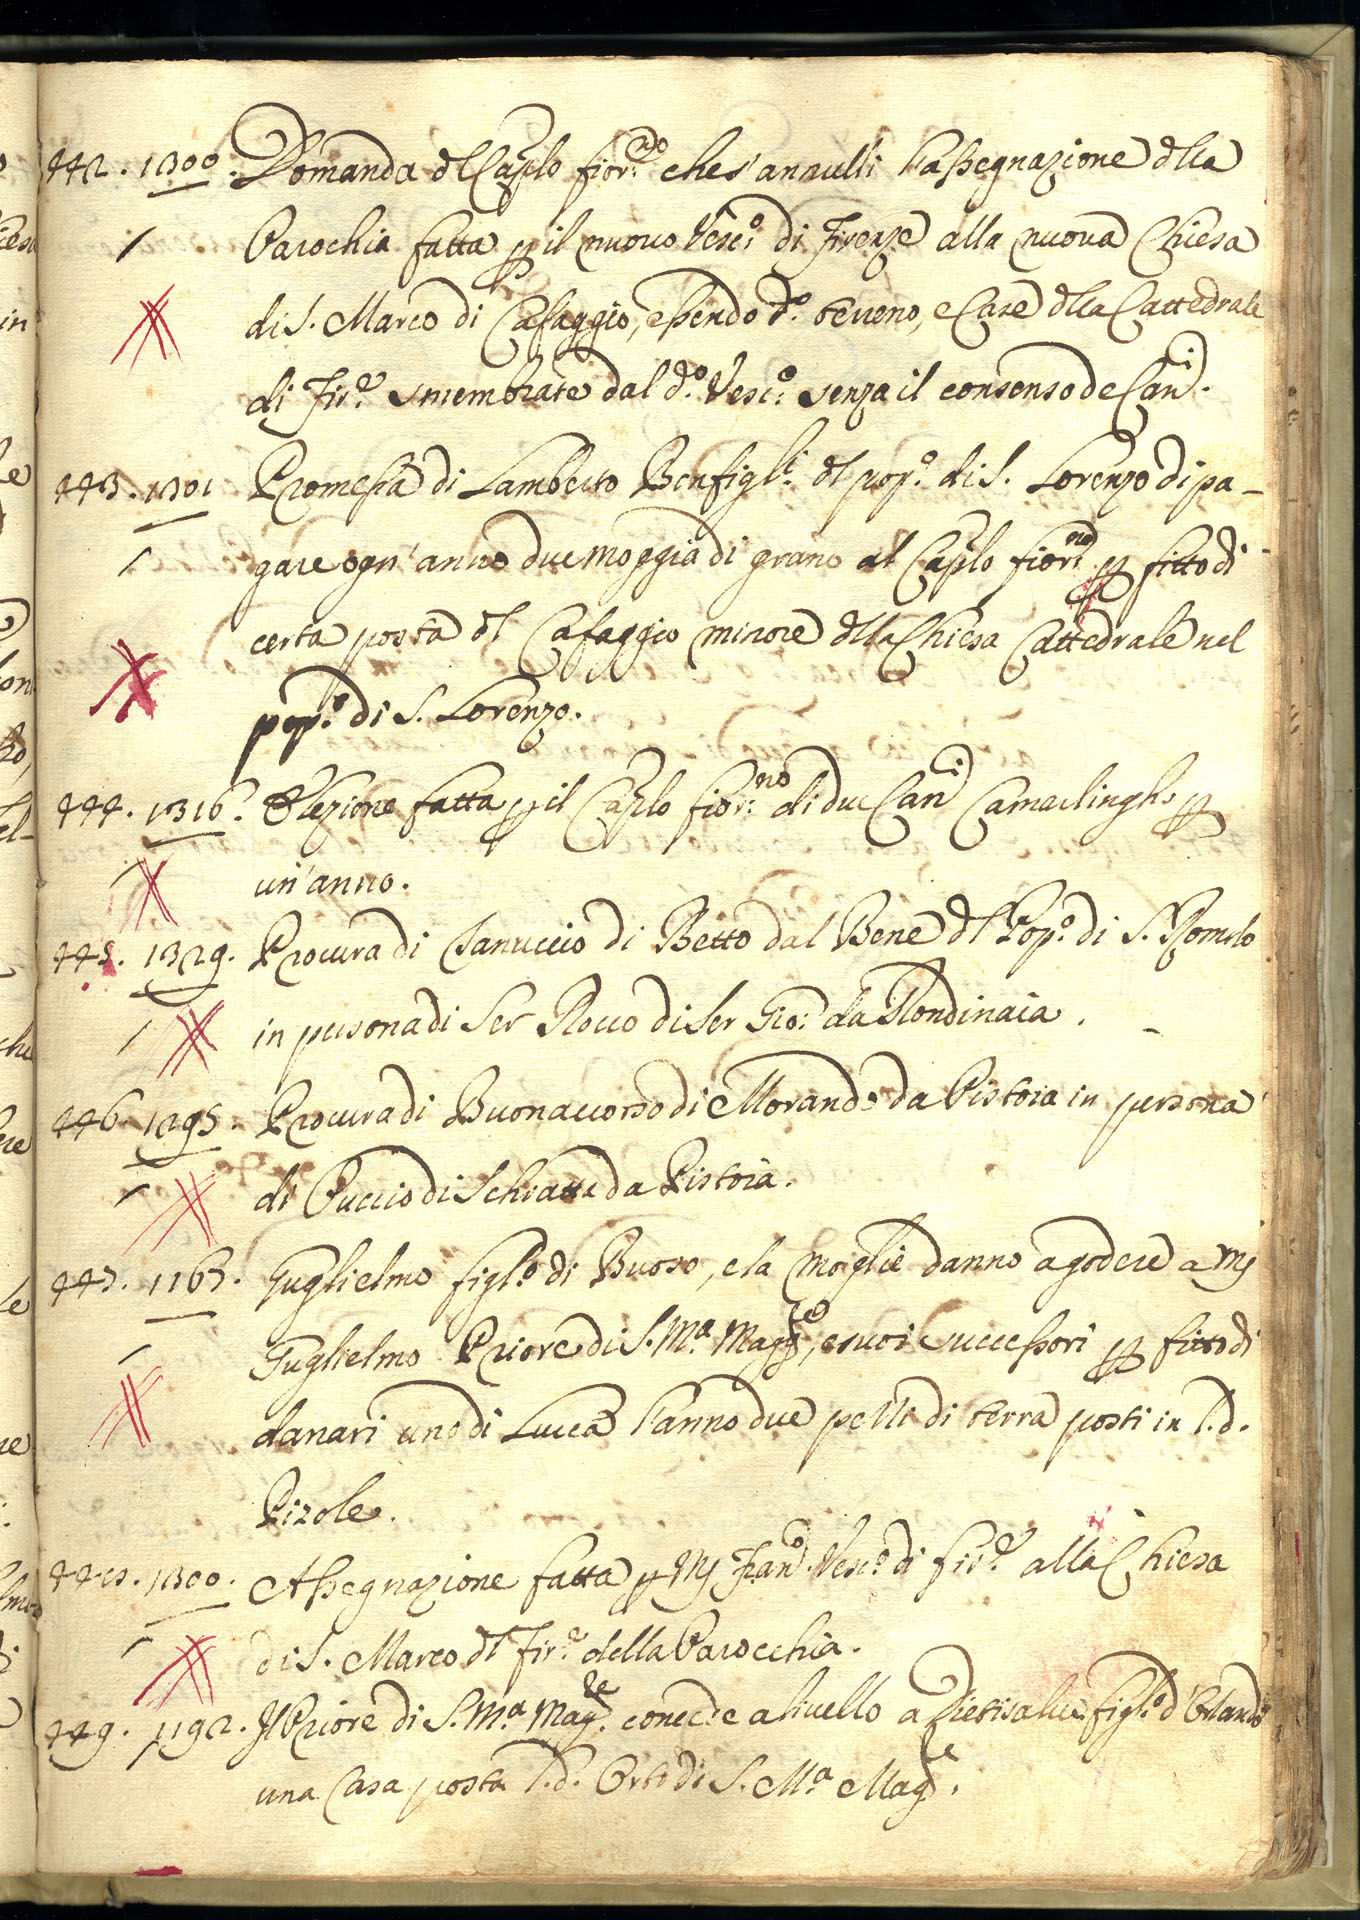 442. 1300. Domanda dl Caplo fior:no che s'annulli l'assegnazione dlla
Parochia fatta p il nuovo Vesc:o di Firenze alla nuova Chiesa
di S. Marco di Cafaggio, essendo d.o terreno, e Case dlla Cattedrale
di Fir.e smembrate dal d.o Vesc:o senza il consenso de Can.i
443. 1301 Promessa di Lamberto Bonfigl.i dl pop.o di S. Lorenzo di pa-
gare ogn'anno due moggia di grano al Caplo fior:no p fitto di
certa posta dl Cafaggio minore dlla Chiesa Cattedrale nel
pop.o di S. Lorenzo.
444. 1316. Elezione fatta p il Caplo fior:no di due Can.i Camarlinghi p
un'anno.
445. 1329. Procura di Vanuccio di Betto dal Bene dl Pop.o di S. Romolo
in persona di Ser Rocco di Ser Gio: da Rondinaia.
446. 1295. Procura di Buonaccorso di Morando da Pistoia in persona
di Puccio di Schiatta da Pistoia.
447. 1167. Guglielmo figl.o di Buoso, e la moglie danno a godere a Mş
Guglielmo Priore di S. M.a Magg.re, e suoi successori p fitto di
danari uno di Lucca l'anno due pezzi di terra posti in l.d.
Rizole.
448. 1300. Assegnazione fatta p Mş Fran.o Vesc.o di fir.e alla Chiesa
di S. Marco dl Fir.e della Parocchia.
449. 1192. Il Priore di S. M.a Mag.re concede a livello a Dietisalvi figl.o d'Orlando
una Casa posta l.d. Orto di S. M.a Mag.re.